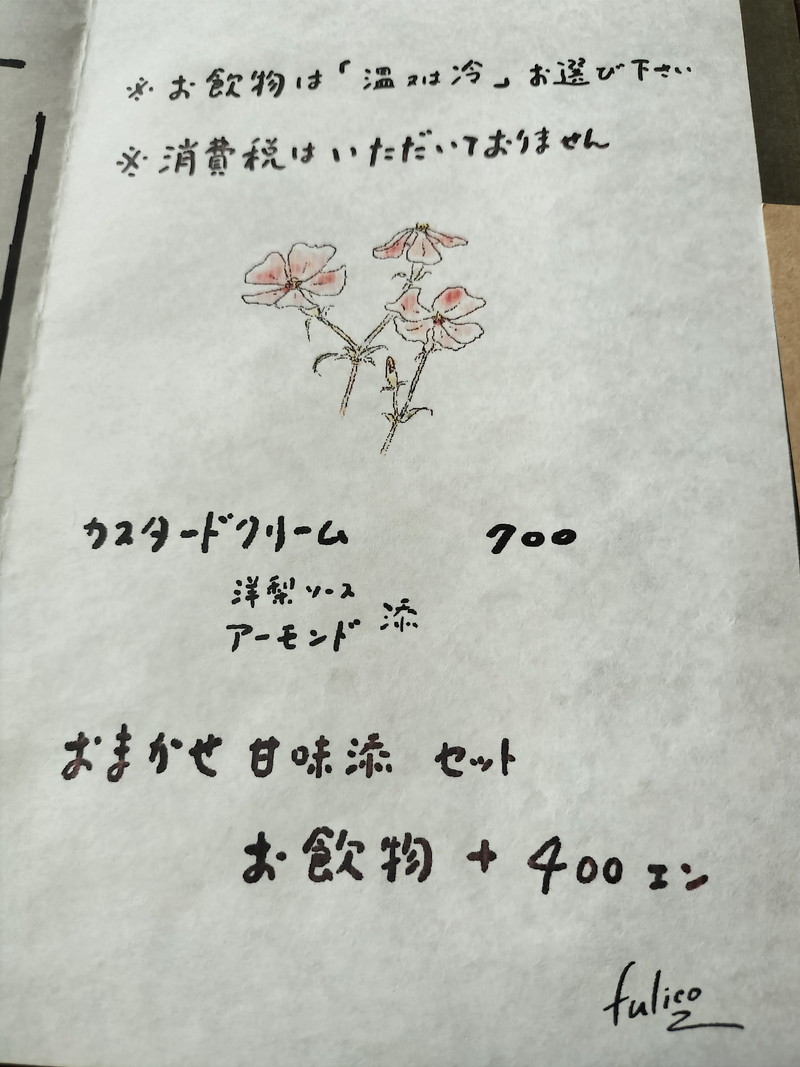 ※お飲物は「温又は冷」お選び下さい
※消費税はいただいておりません
カスタードクリーム 700
洋梨ソース
アーモンド 添
おまかせ 甘味添 セット
お飲物 + 400エン
fulico